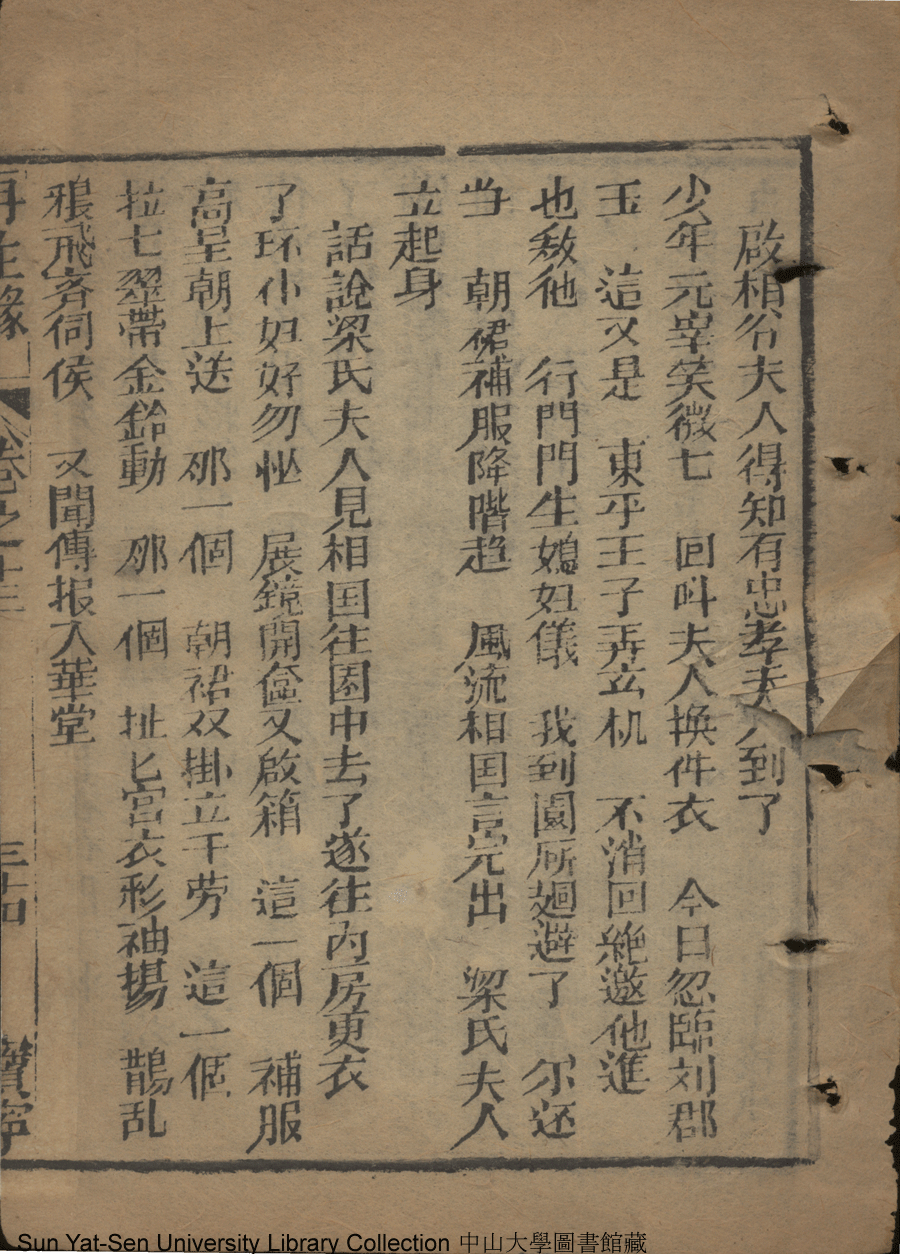 啟相谷夫人得知有忠孝夫人到了
少年元宰笑微七 回呌夫人換件衣 今日忽臨刘郡
玉 這又是 東平王子弄玄机 不消回絶邀他進
也敖他 行門門生媳妇儀 我到園所廻避了 尔还
当 朝裙補服降階趋 風流相国言完出 梁氏夫人
立起身
話說梁氏夫人見相国往園中去了遂往內房更衣
了环仆妇好勿忙 展鏡開奩又啟箱 這一個 補服
高呈朝上送 那一個 朝裙双掛立于旁 這一個
拉七翠帶金鈴動 那一個 扯匕宮衣彩袖揚 鵲乱
鴉飛齐伺侯 又聞傳报入華堂
再生緣 卷之十三 三十四 寶寧
Sun Yat-Sen University Library Collection 中山大學圖書館藏